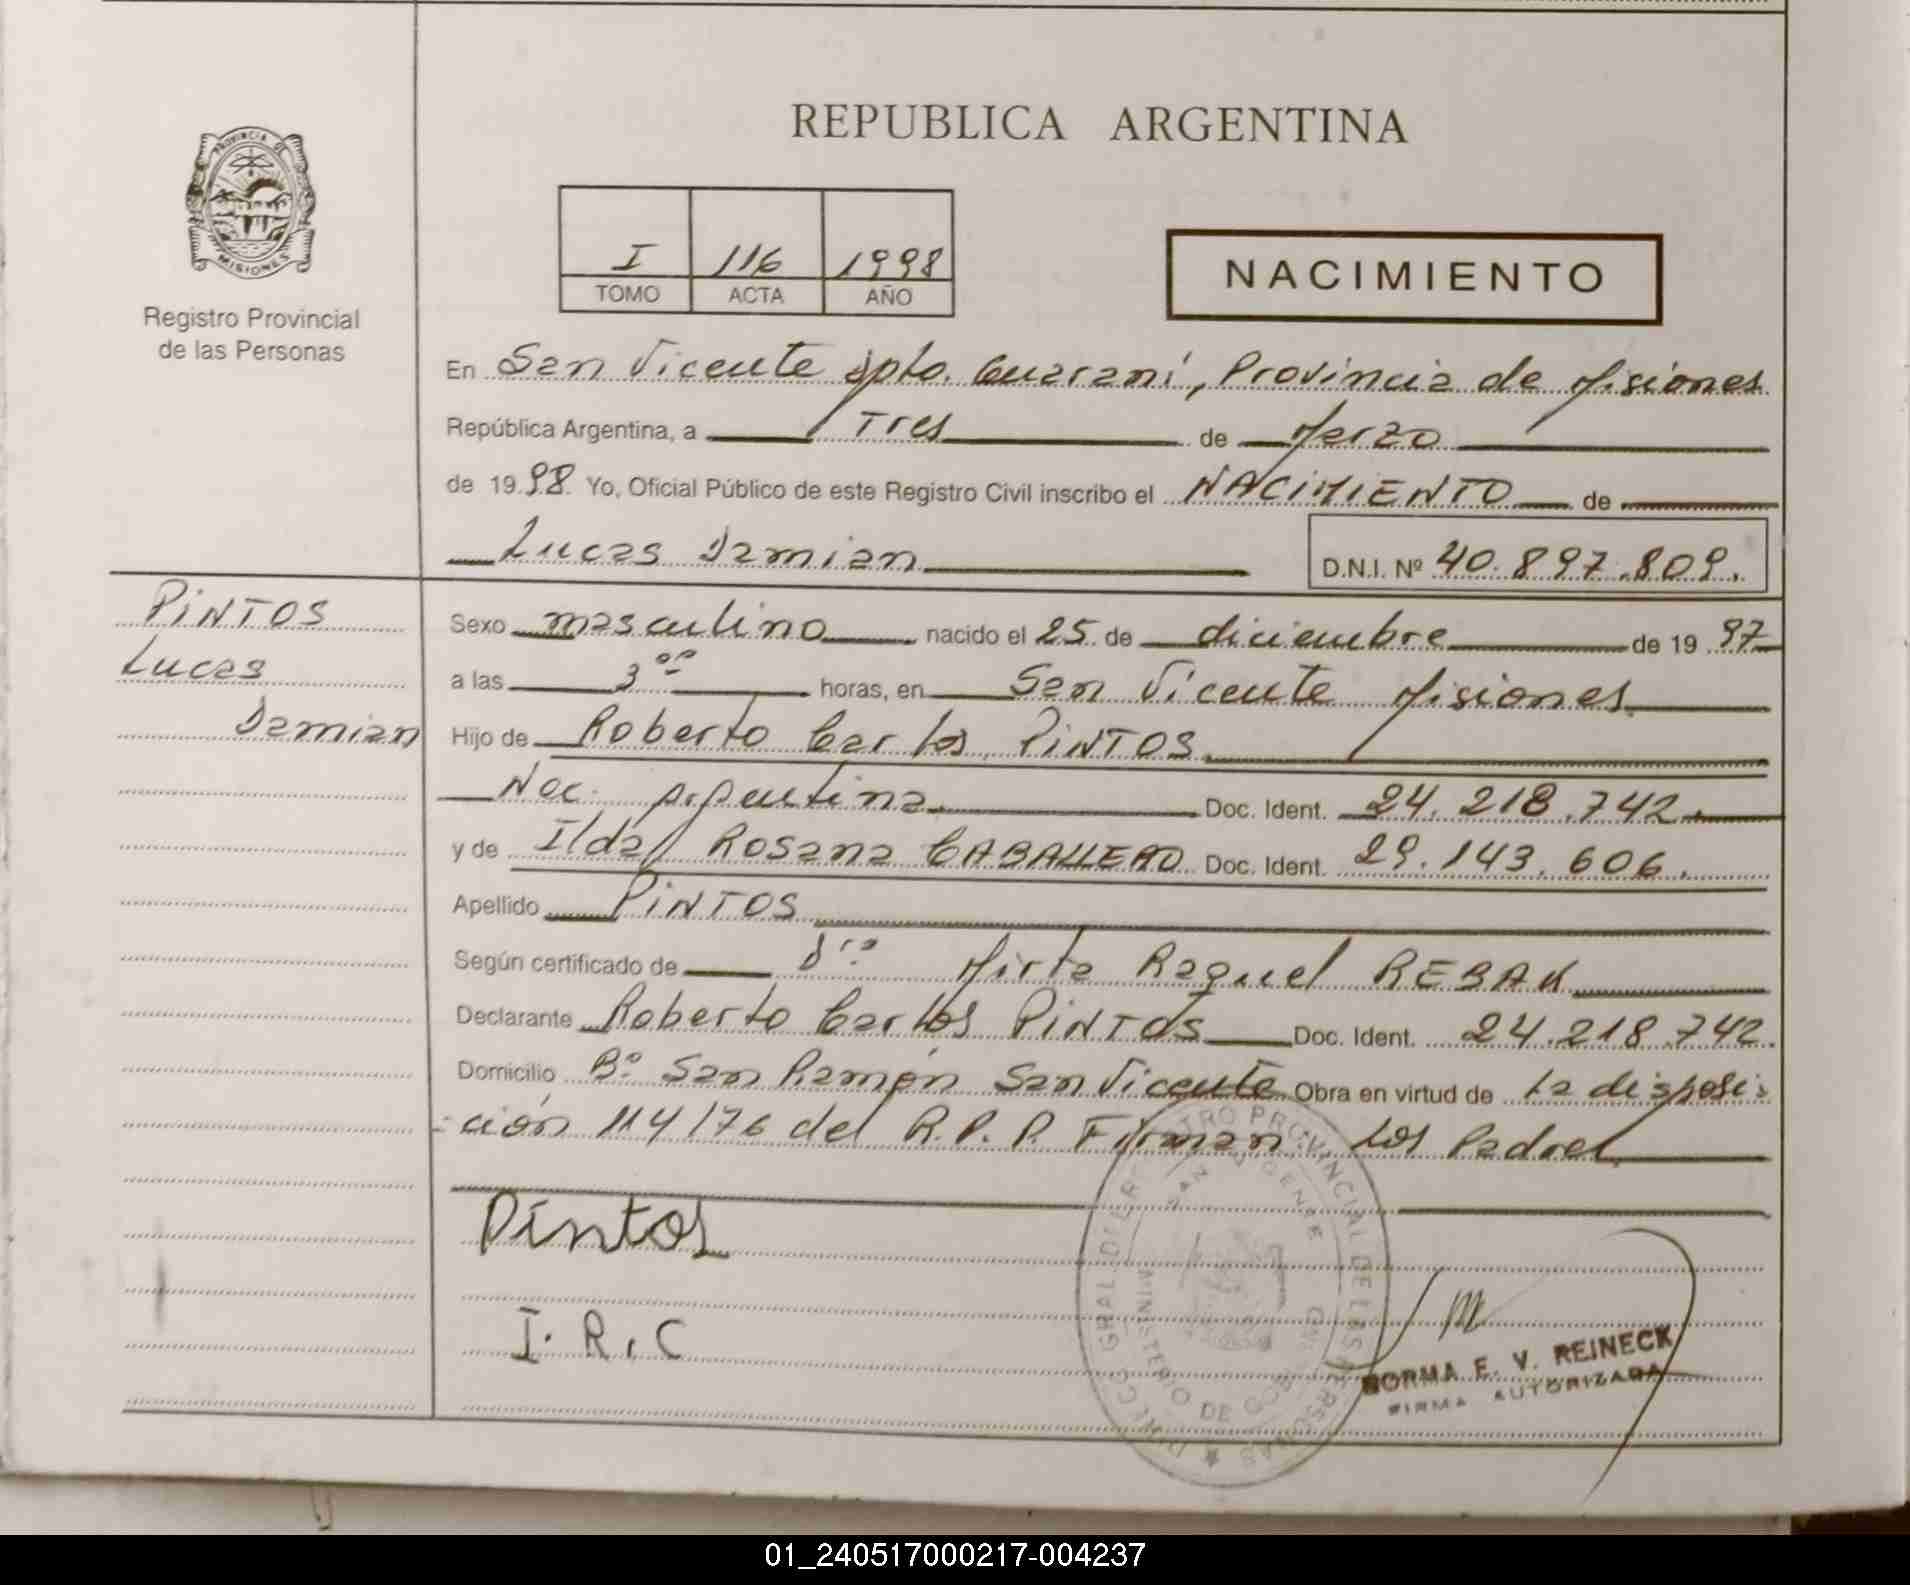 REPUBLICA ARGENTINA
PROVINCIA DE
MISIONES
Registro Provincial
de las Personas
I 116 1998
TOMO ACTA AÑO
NACIMIENTO
En San Vicente dpto. Guaraní, Provincia de Misiones
República Argentina, a Tres de Marzo
de 1998. Yo, Oficial Público de este Registro Civil inscribo el NACIMIENTO de
Lucas Damian
D.N.I. Nº 40.897.809.
PINTOS
Lucas
Damian
Sexo masculino nacido el 25 de diciembre de 1997
a las 3ºº horas, en San Vicente Misiones
Hijo de Roberto Carlos PINTOS
Nac. Argentina Doc. Ident. 24.218.742.
y de Ilda Rosana CABALLERO Doc. Ident. 29.143.606.
Apellido PINTOS
Según certificado de Dra Mirta Raquel REBAK
Declarante Roberto Carlos PINTOS Doc. Ident. 24.218.742.
Domicilio Bº San Ramón San Vicente Obra en virtud de La disposi-
-ción 114/76 del R.P.P. Firman Los Padres
Pintos
I. R. C
DIRECC. GRAL. DEL REGISTRO PROVINCIAL DE LAS PERSONAS
MINISTERIO DE GOBIERNO
SAN VICENTE
NORMA E. V. REINECK
FIRMA AUTORIZADA
01_240517000217-004237